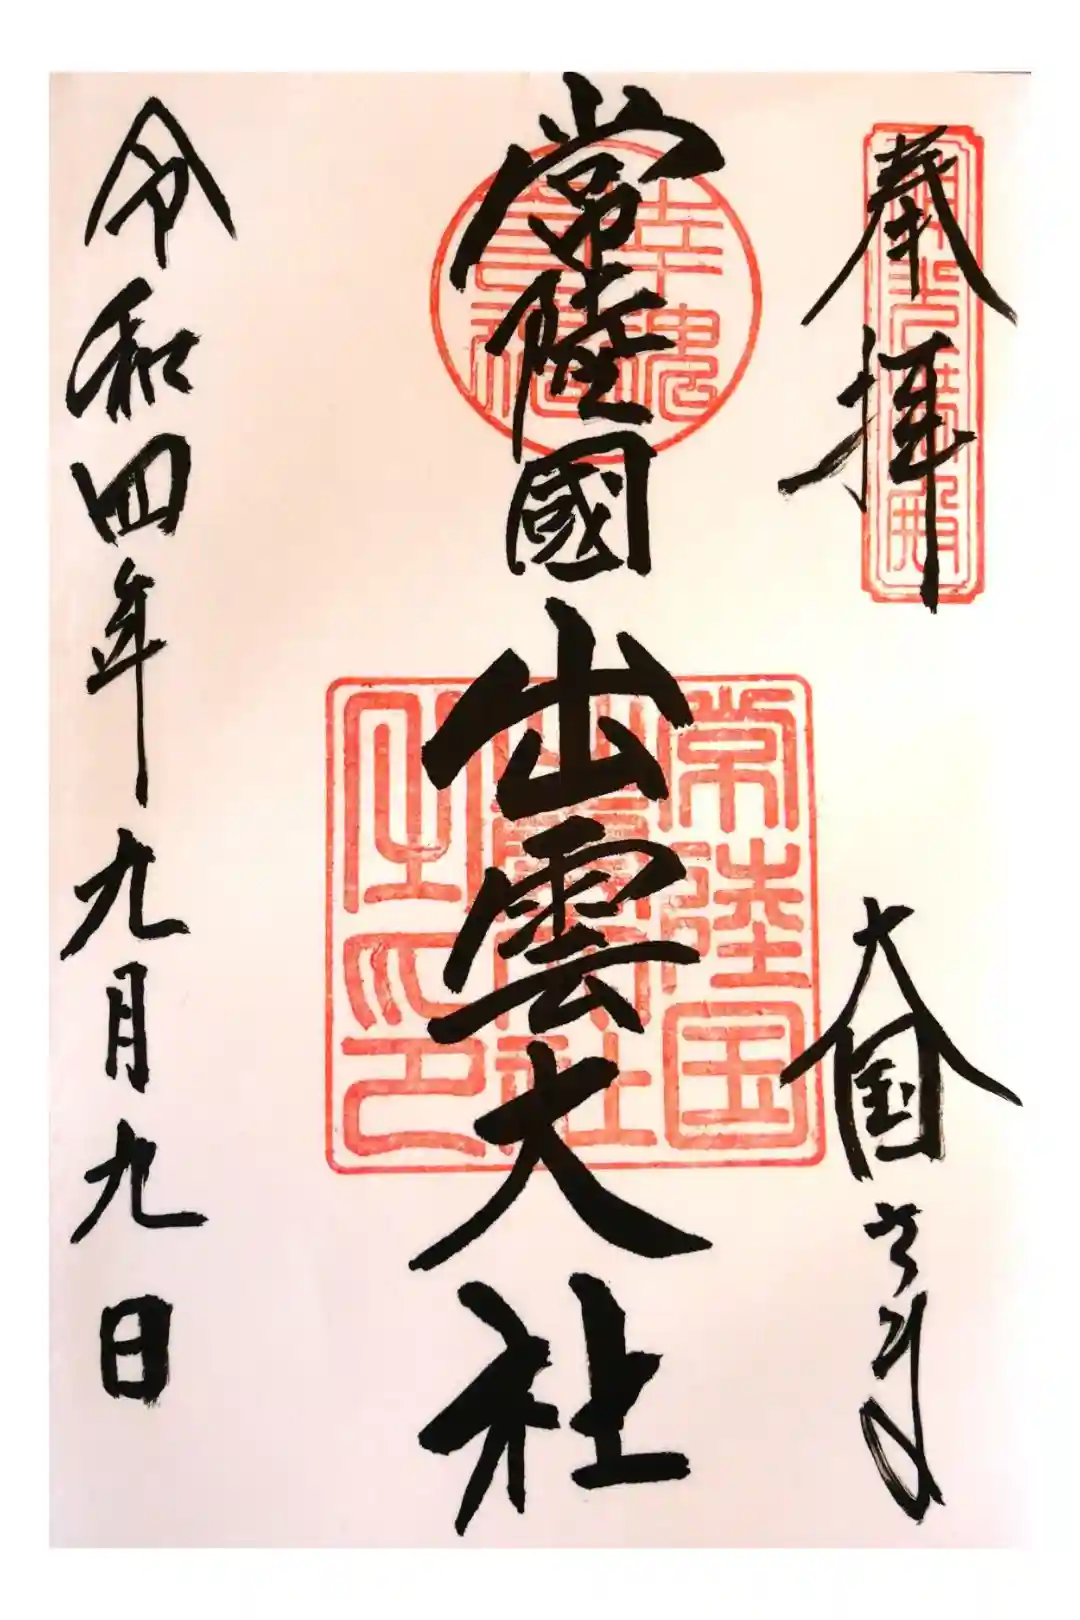 奉拝
大国さま
常陸國
出雲大社
令和四年九月九日
常陸国
出雲大社
之印
幸魂